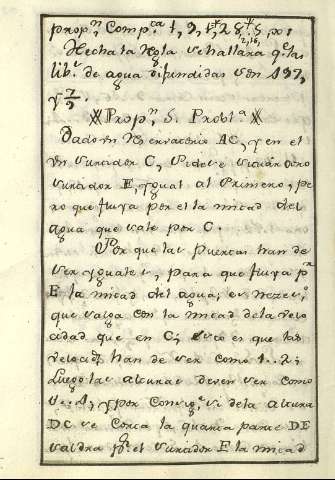 propⁿ Compᶜᵃ 1, 3, 1,28, 5, x1
2,16,
Hecha la Regla se hallara qᵉ las
libˢ de agua difundidas son 197,
y 7/9
Propⁿ 5. Problᵃ
Dado un Reservatorio AC, y en el
un surcidor C, se deve situar otro
surcidor E, ygual al Primero, pe
ro que fluya por el la mitad del
agua que sale por C.
Por que las Puertas han de
ser yguales, para que fluya pʳ
E la mitad del agua; es nezesᵒ
que salga con la mitad de la velo
cidad que en C; esto es que las
velocidˢ han de ser como 1..2;
Luego las alturas deven ser como
1..4, y por Conseqᵉ si de la altura
DC se corta la quarta parte DE
saldra pʳ el surcidor E la mitad